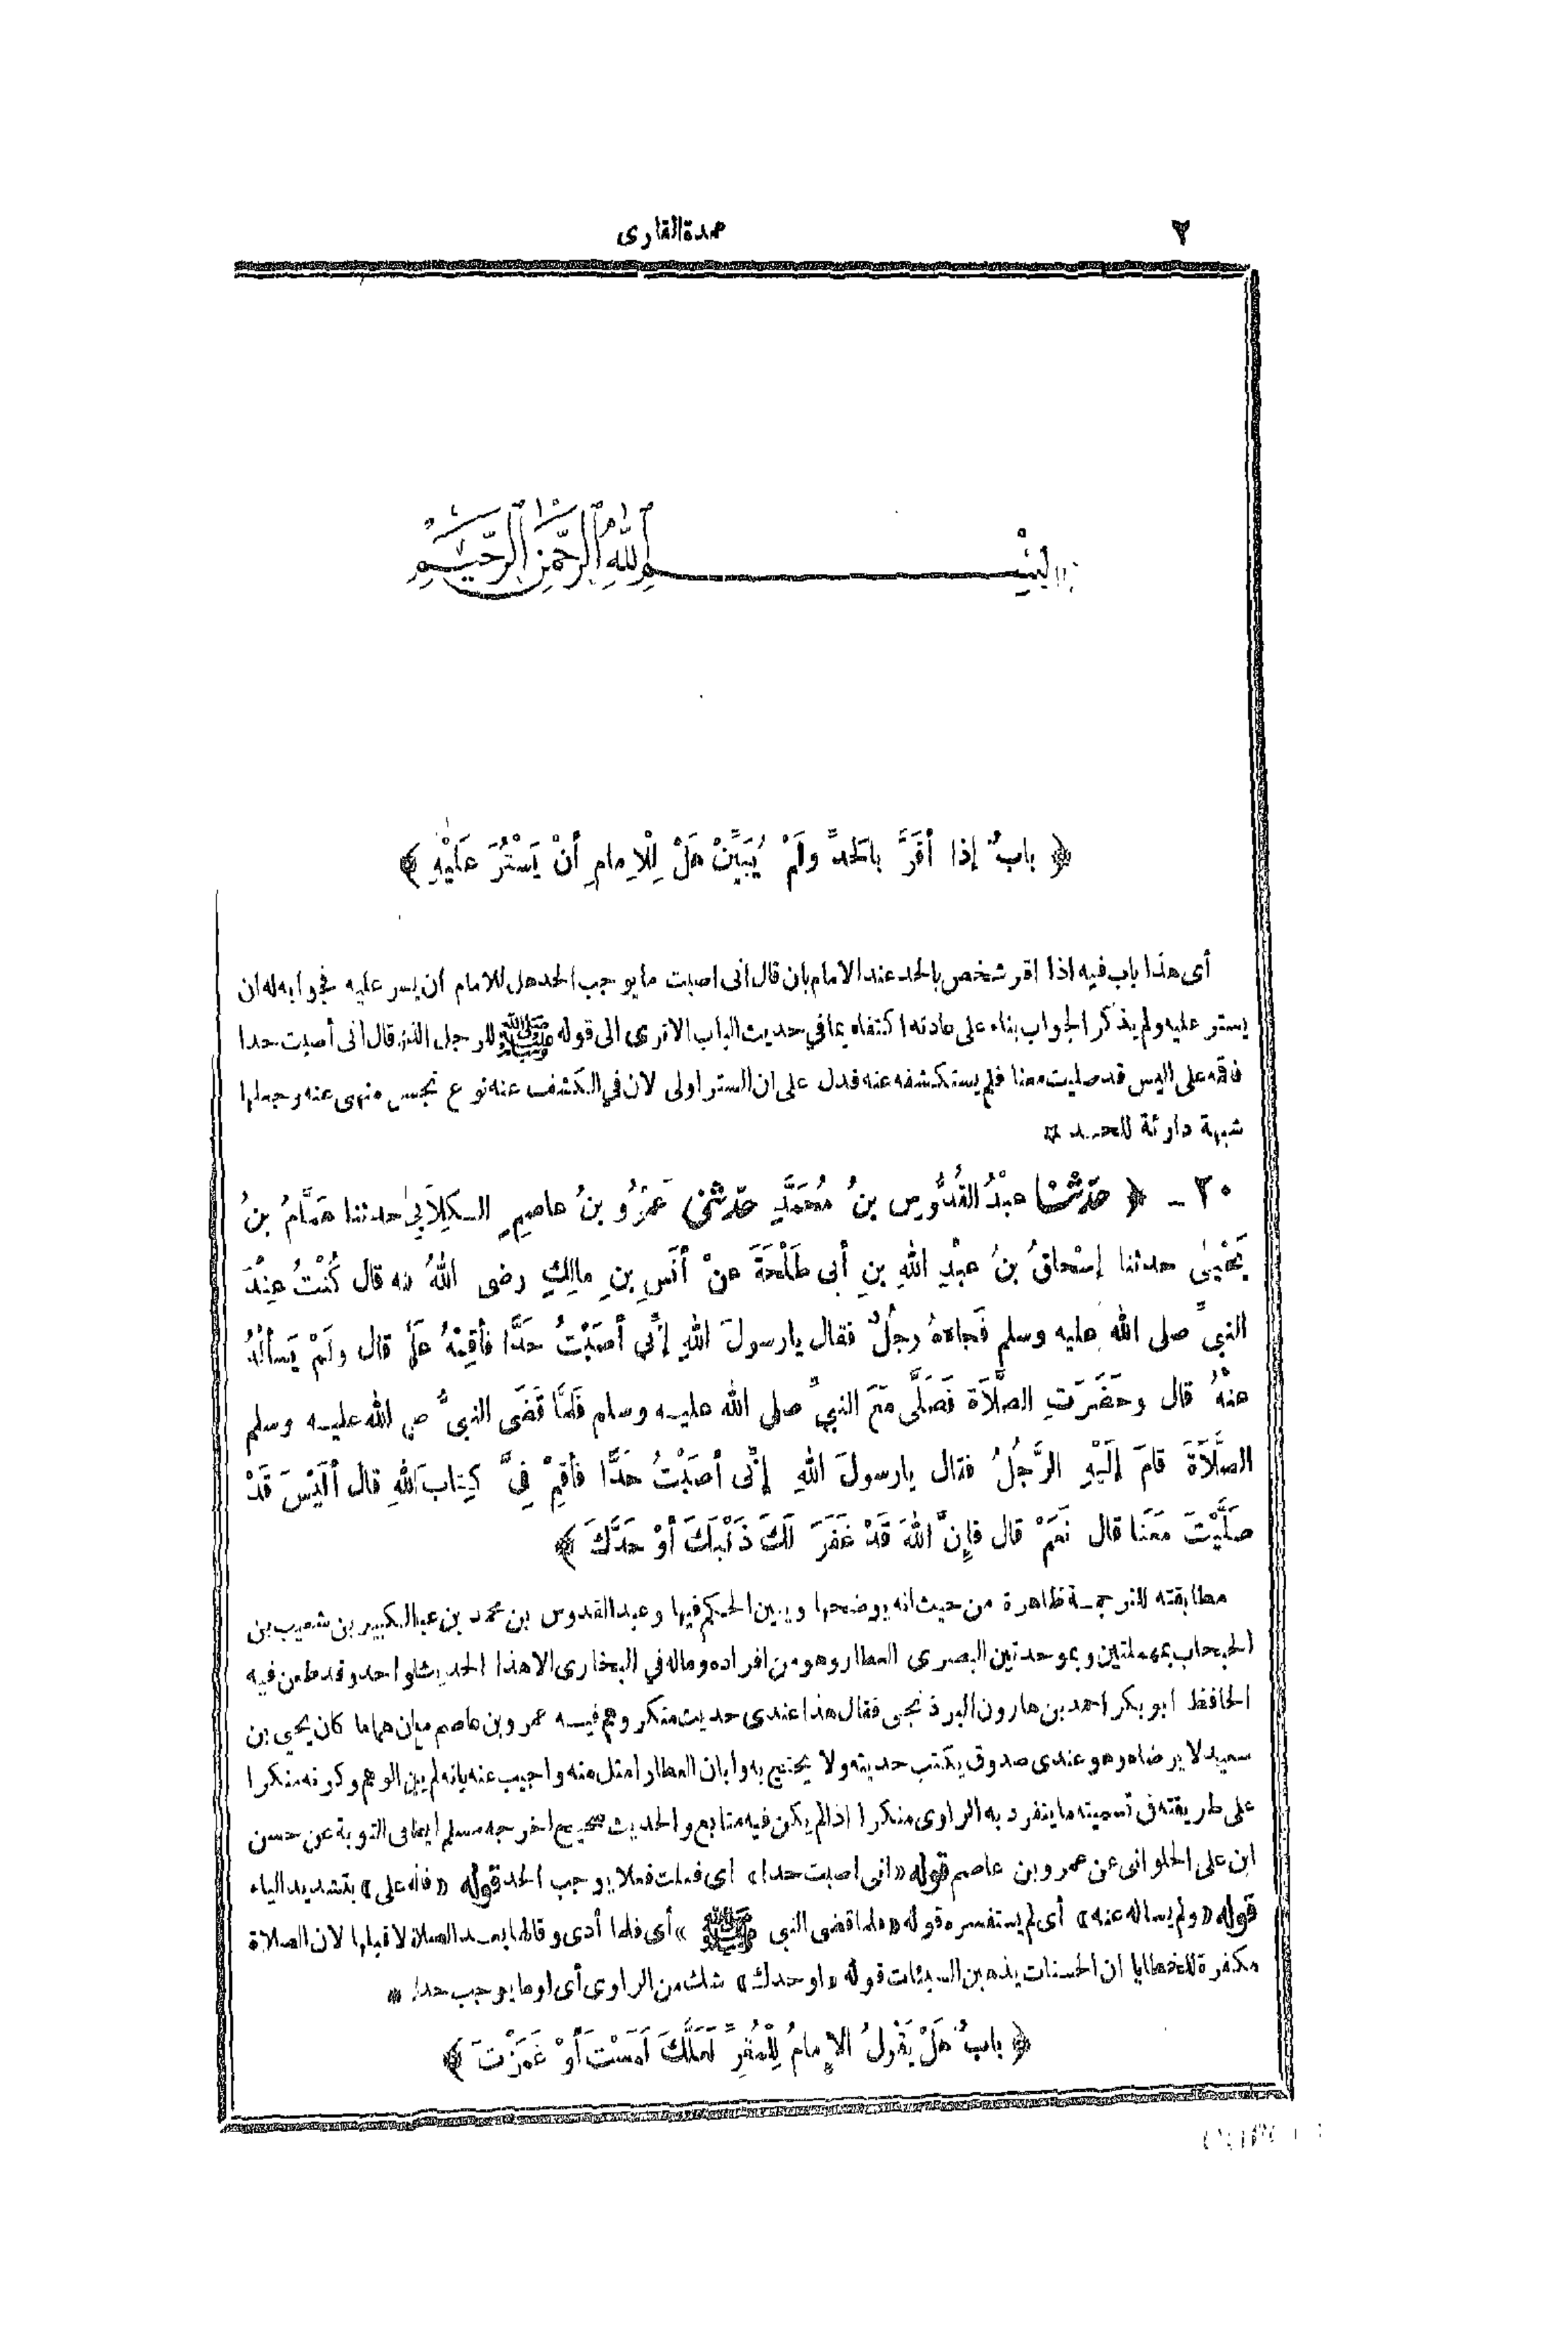 ٢
عمدة القارى
بِسْمِ اللهِ الرَّحْمٰنِ الرَّحِيمِ
﴿ بابٌ إذا أقَرَّ بالحَدِّ ولَمْ يُبَيِّنْ هَلْ لِلْإِمامِ أنْ يَسْتُرَ عَلَيْهِ ﴾
أى هذا باب فيه اذا اقر شخص بالحد عند الامام بان قال انى اصبت ما يوجب الحد هل للامام ان يسر عليه فجوابه له ان
يستر عليه ولم يذكر الجواب بناء على عادته اكتفاء بما في حديث الباب الا ترى الى قوله ﷺ للرجل الذى قال انى أصبت حدا
فاقمه على اليس قد صليت معنا فلم يستكشفه عنه فدل على ان الستر اولى لان في الكشف عنه نوع تجسس منهى عنه وجعلها
شبهة دارئة للحد *
٢٠ - ﴿ حدّثنا عبْدُ القُدُّوسِ بنُ مُحَمَّدٍ حدّثنى عَمْرُو بنُ عاصِمٍ الكِلاَبِيُّ حدثنا هَمَّامُ بنُ
يَحْيٰى حدثنا إسْحاقُ بنُ عبْدِ اللهِ بنِ أبى طَلْحَةَ عنْ أنَسِ بنِ مالِكٍ رضى اللهُ نه قال كُنْتُ عِنْدَ
النبىِّ صلى الله عليه وسلم فَجاءَهُ رجُلٌ فقال يارسولَ اللهِ إنِّى أصَبْتُ حَدًّا فأقِمْهُ عَلَىَّ قال ولَمْ يَسألْهُ
عنْهُ قال وحَضَرَتِ الصَّلاَة فَصَلَّى مَعَ النبىِّ صلى الله عليه وسلم فَلَمَّا قَضَى النبىُّ ص الله عليه وسلم
الصَّلاَةَ قامَ إلَيْهِ الرَّجُلُ فقال يارسولَ اللهِ إنِّى أصَبْتُ حَدًّا فأقِمْ فِىَّ كِتابَ اللهِ قال ألَيْسَ قَدْ
صَلَّيْتَ مَعَنا قال نَعَمْ قال فإنَّ اللهَ قَدْ غَفَرَ لَكَ ذَنْبَكَ أوْ حَدَّكَ ﴾
مطابقته للترجمة ظاهرة من حيث انه يوضحها ويبين الحكم فيها وعبد القدوس بن محمد بن عبد الكبير بن شعيب بن
الحبحاب بمهملتين وبموحدتين البصرى العطار وهو من افراده وماله في البخارى الا هذا الحديث الواحد وقد طعن فيه
الحافظ ابو بكر احمد بن هارون البرذنجى فقال هذا عندى حديث منكر وهم فيه عمرو بن عاصم مع ان هماما كان يحيى بن
سعيد لا يرضاه وهو عندى صدوق يكتب حديثه ولا يحتج به وابان العطار امثل منه واجيب عنه بانه لم يبين الوهم وكونه منكرا
على طريقته فى تسميته ما ينفرد به الراوى منكرا اذا لم يكن فيه متابع والحديث صحيح اخرجه مسلم ايضا فى التوبة عن حسن
ابن على الحلوانى عن عمرو بن عاصم قوله «انى اصبت حدا» اى فعلت فعلا يوجب الحد قوله «فاقمه على» بتشديد الياء
قوله «ولم يساله عنه» أى لم يستفسره قوله «فلما قضى النبي ﷺ» أى فلما أدى وقالها بعد الصلاة لا قبلها لان الصلاة
مكفرة للخطايا ان الحسنات يذهبن السيئات قوله «اوحدك» شك من الراوى أى او ما يوجب حدا *
﴿ بابٌ هَلْ يَقُولُ الإمامُ لِلْمُقِرِّ لَعَلَّكَ لَمَسْتَ أوْ غَمَزْتَ ﴾